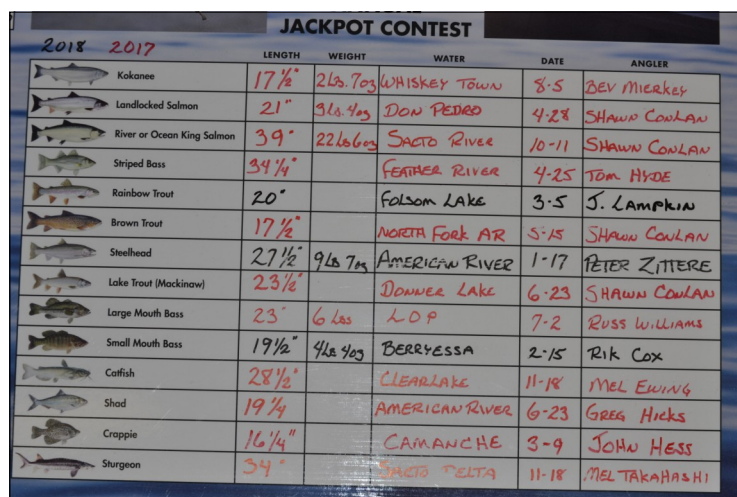 JACKPOT CONTEST
2018 2017
LENGTH WEIGHT WATER DATE ANGLER
Kokanee 17 1/2" 2Lbs. 7oz WHISKEY TOWN 8-5 BEV MIERKEY
Landlocked Salmon 21" 3Lb. 4oz DON PEDRO 4-28 SHAWN CONLAN
River or Ocean King Salmon 39" 22Lbs 6oz SACTO RIVER 10-11 SHAWN CONLAN
Striped Bass 34 1/4" FEATHER RIVER 4-25 TOM HYDE
Rainbow Trout 20" FOLSOM LAKE 3-5 J. LAMPKIN
Brown Trout 17 1/2" NORTH FORK AR 5-15 SHAWN CONLAN
Steelhead 27 1/2" 9Lb 7oz AMERICAN RIVER 1-17 PETER ZITTERE
Lake Trout (Mackinaw) 23 1/2" DONNER LAKE 6-23 SHAWN CONLAN
Large Mouth Bass 23" 6 Lbs LOP 7-2 RUSS WILLIAMS
Small Mouth Bass 19 1/2" 4Lb 4oz BERRYESSA 2-15 RIK COX
Catfish 28 1/2" CLEARLAKE 11-18 MEL EWING
Shad 19 1/4 AMERICAN RIVER 6-23 GREG HICKS
Crappie 16 1/4" CAMANCHE 3-9 JOHN HESS
Sturgeon 34" SACTO DELTA 11-18 MEL TAKAHASHI